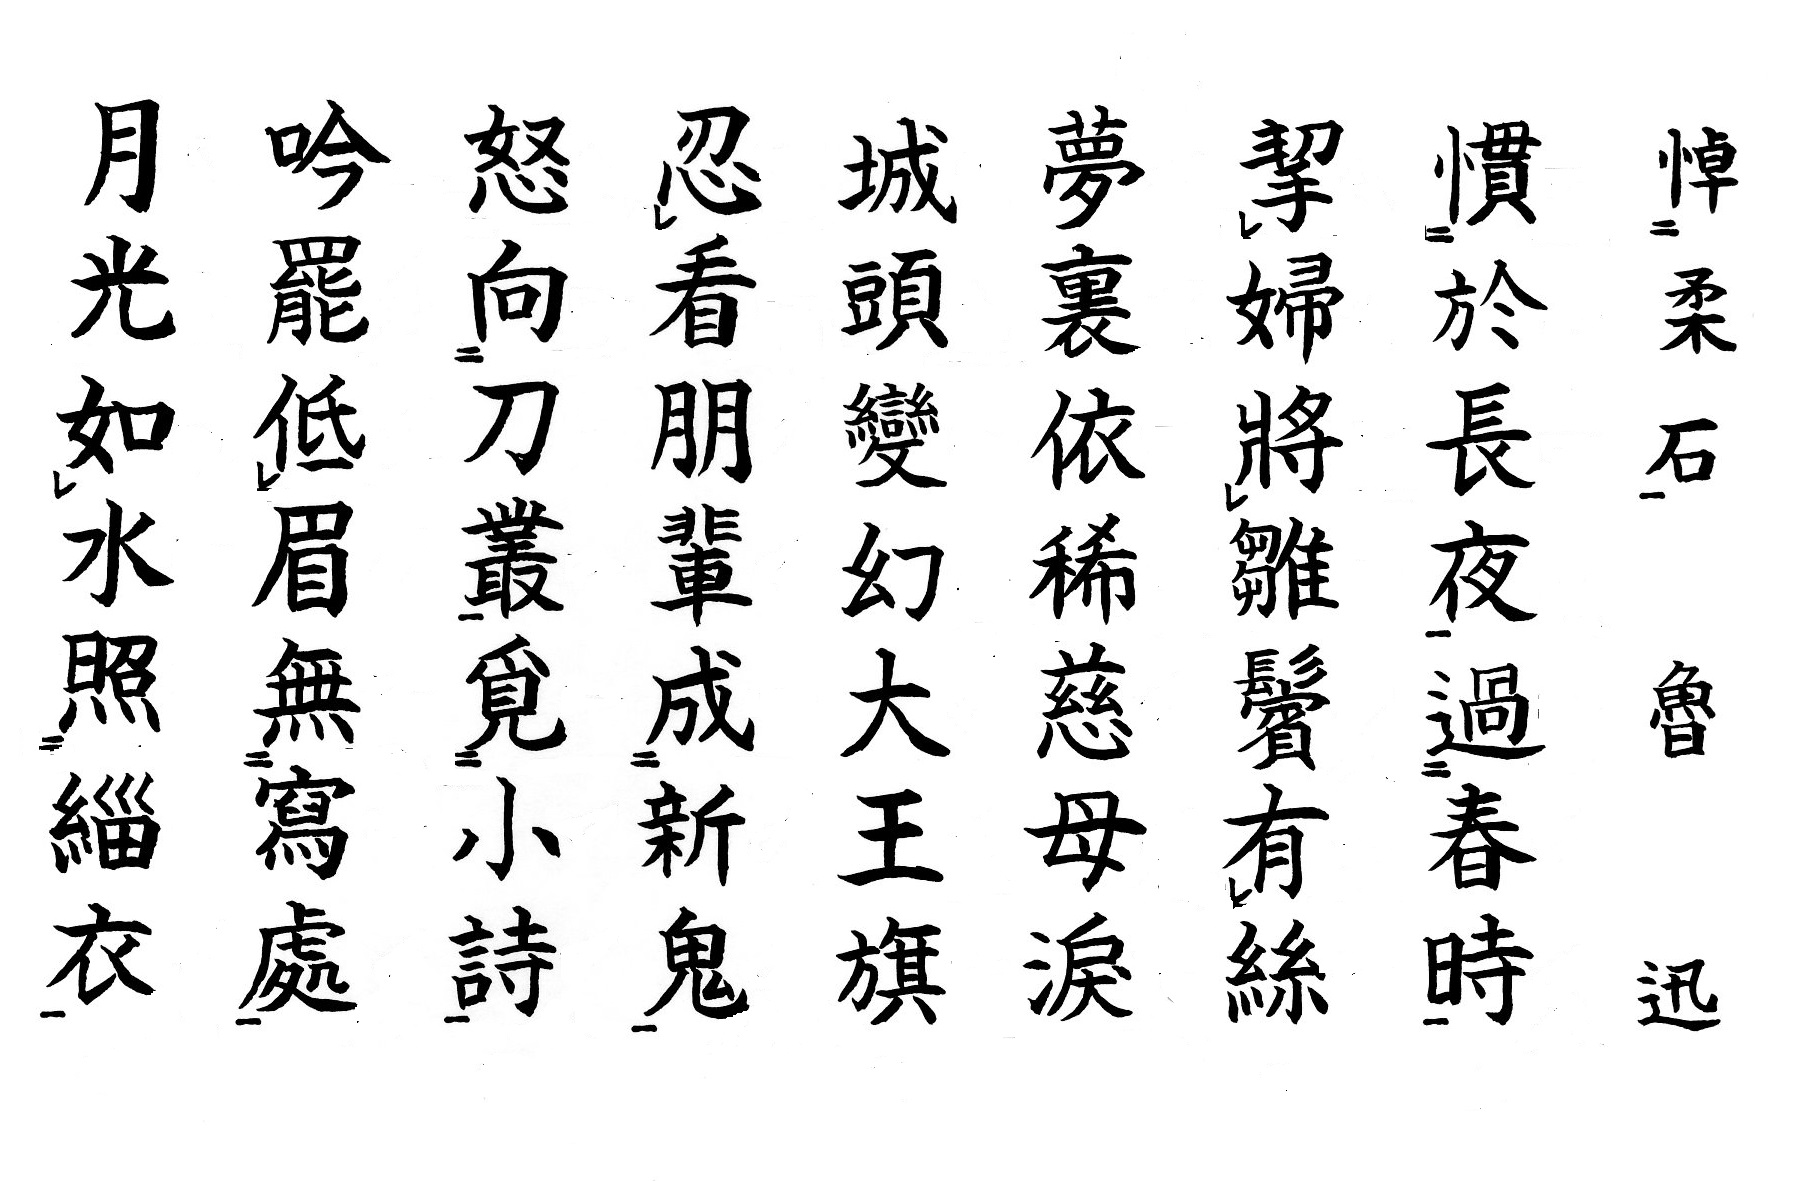 悼柔石 魯迅
慣於長夜過春時
挈婦將雛鬢有絲
夢裏依稀慈母淚
城頭變幻大王旗
忍看朋輩成新鬼
怒向刀叢覓小詩
吟罷低眉無寫處
月光如水照緇衣